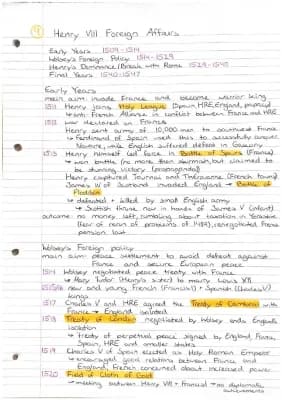 Henry VIII Foreign Affairs
Early Years 1509-1514
Wolsey's Foreign Policy 1514-1529
Henry's Dominance/Break with Rome 1529-1540
Final Years 1540-1547
Early Years
main aim: invade France and become warrior king
1511 Henry joins Holy League (Spain, HRE, England, papacy)
↳ anti-French Alliance in conflict between France and HRE
1512 war declared on France
Henry sent army of 10,000 men to southwest France
↳ Ferdinand of Spain used this to successfully conquer
Navarre, while English suffered defeat in Gascony
1513 Henry himself led force in Battle of Spurs (France)
↳ won battle (no more than skirmish, but claimed to
be stunning victory (propaganda))
Henry captured Tournai and Thérouanne (French town)
James IV of Scotland invaded England → Battle of
Flodden
↳ defeated + killed by small English army
↳ Scottish throne now in hands of James V (infant)
outcome: no money left, rumbling about taxation in Yorkshire
(fear of rerun of problems of 1489), renegotiated French
pension lost
Wolsey's Foreign policy
main aim: peace settlement to avoid defeat against
France and secure European peace
1514 Wolsey negotiated peace treaty with France
↳ Mary Tudor (Henry's sister) to marry Louis XII
1515/16 new and young French (Francis I) + Spanish (Charles V)
kings
1517 Charles V and HRE agreed the Treaty of Cambrai with
France → England isolated
1518 Treaty of London negotiated by Wolsey ends England's
isolation
↳ treaty of perpetual peace signed by England, France,
Spain, HRE and smaller states
1519 Charles V of Spain elected as Holy Roman Emperor
↳ encouraged good relations between France and
England, French concerned about increased power
1520 Field of Cloth of Gold
↳ meeting between Henry VIII + Francis I → no diplomatic